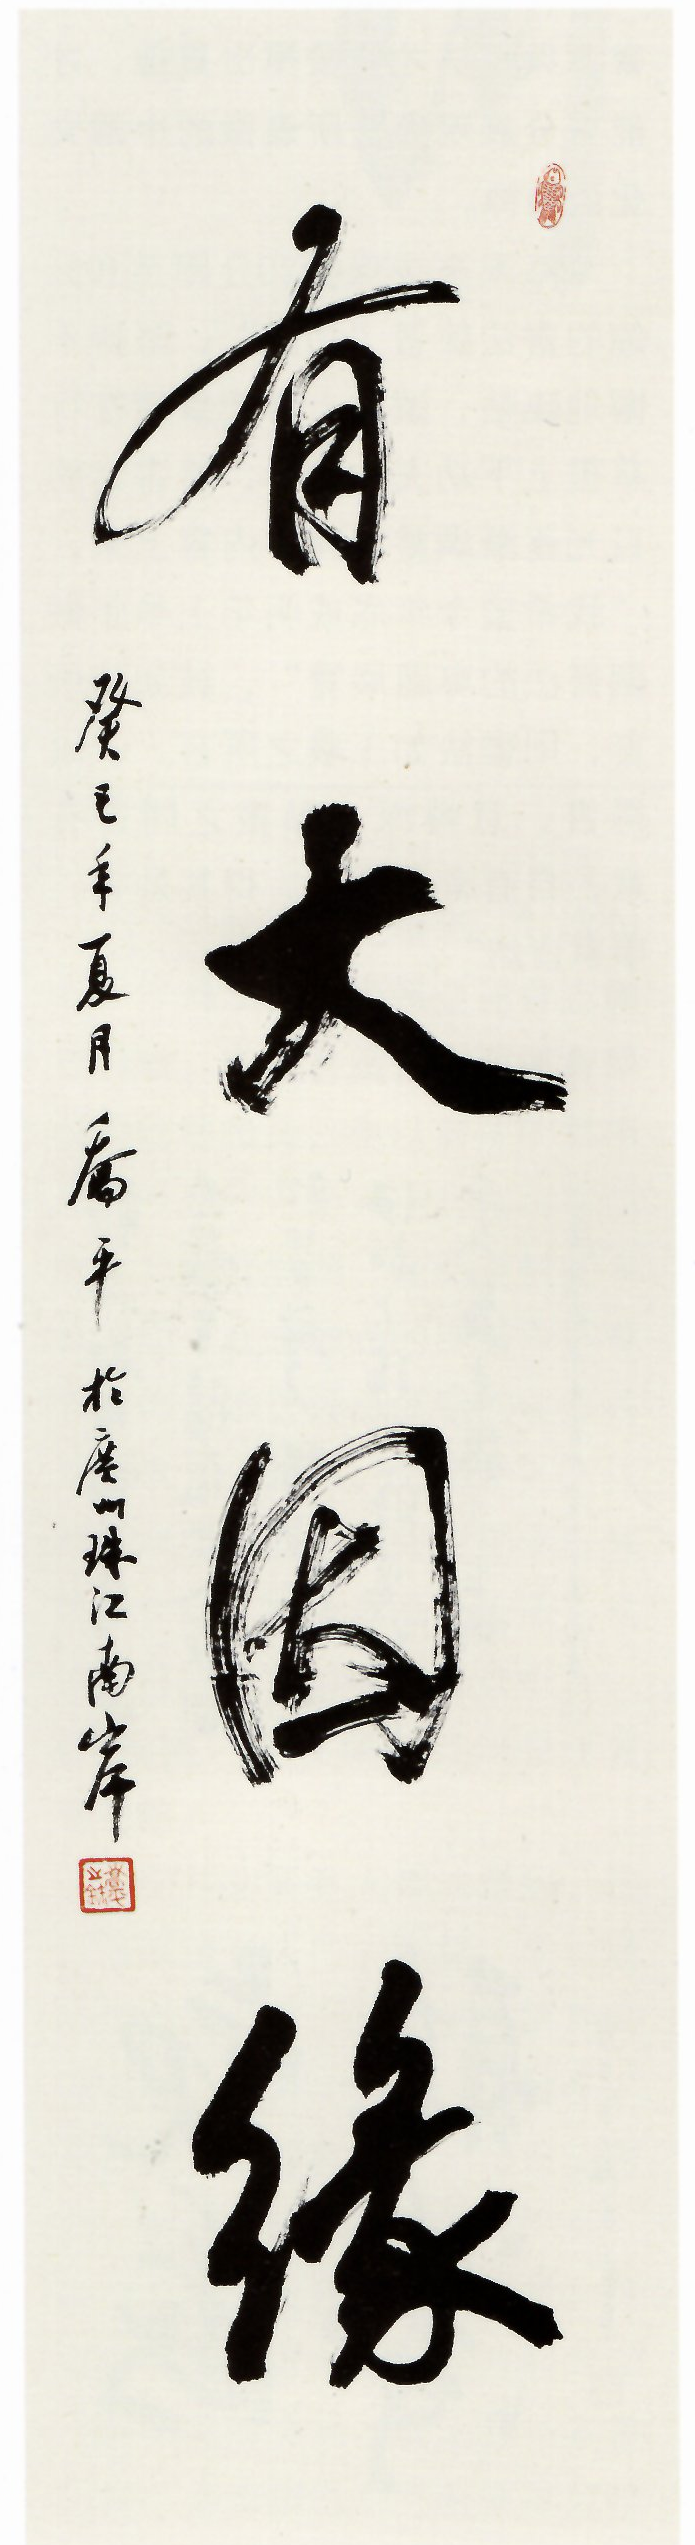 有大因缘
癸巳年夏月喬平於廣州珠江南岸